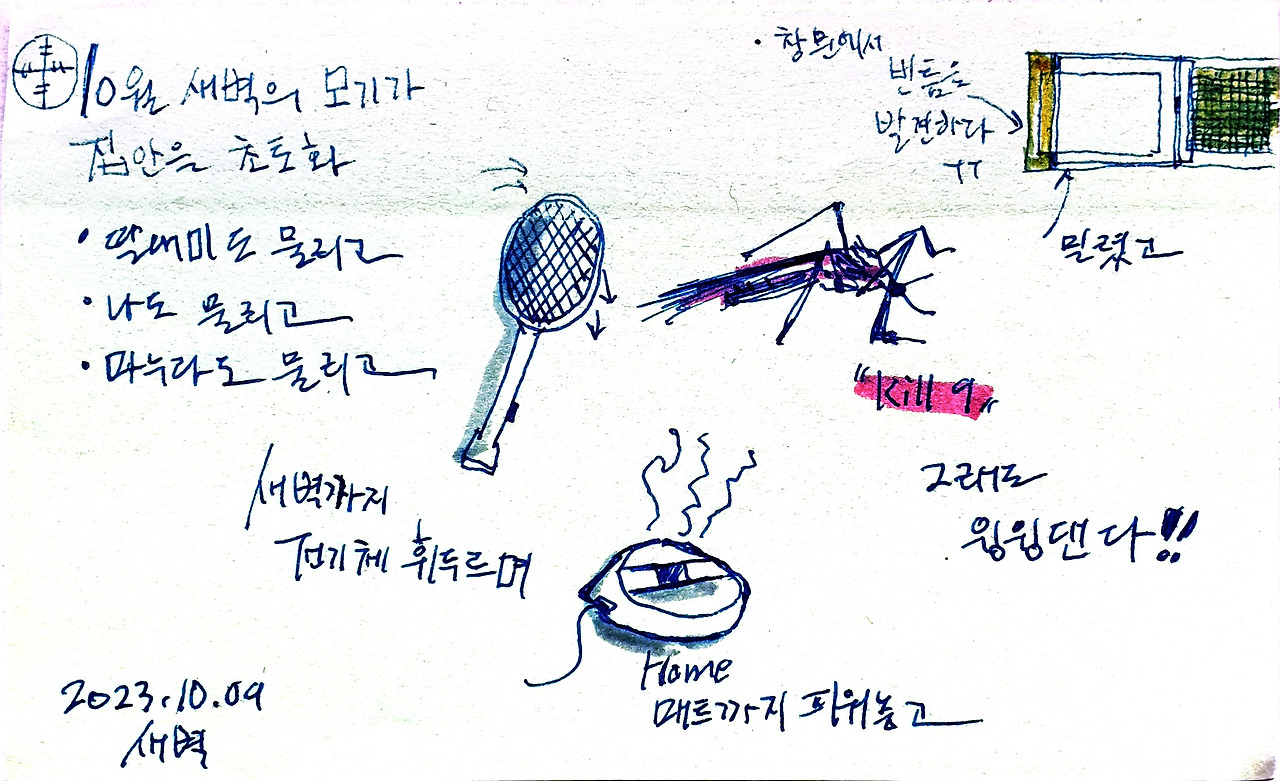 10월 새벽의 모기가
집안은 초토화
• 딸래미도 물리고
• 나도 물리고
• 마누라도 물리고
새벽까지
전기체 휘두르며
2023.10.09
새벽
Home
매트까지 피워놓고
"Kill 9"
그래도
윙윙댄다!!
• 창문에서
빈틈을
발견하다
ㅜㅜ
밀렸고